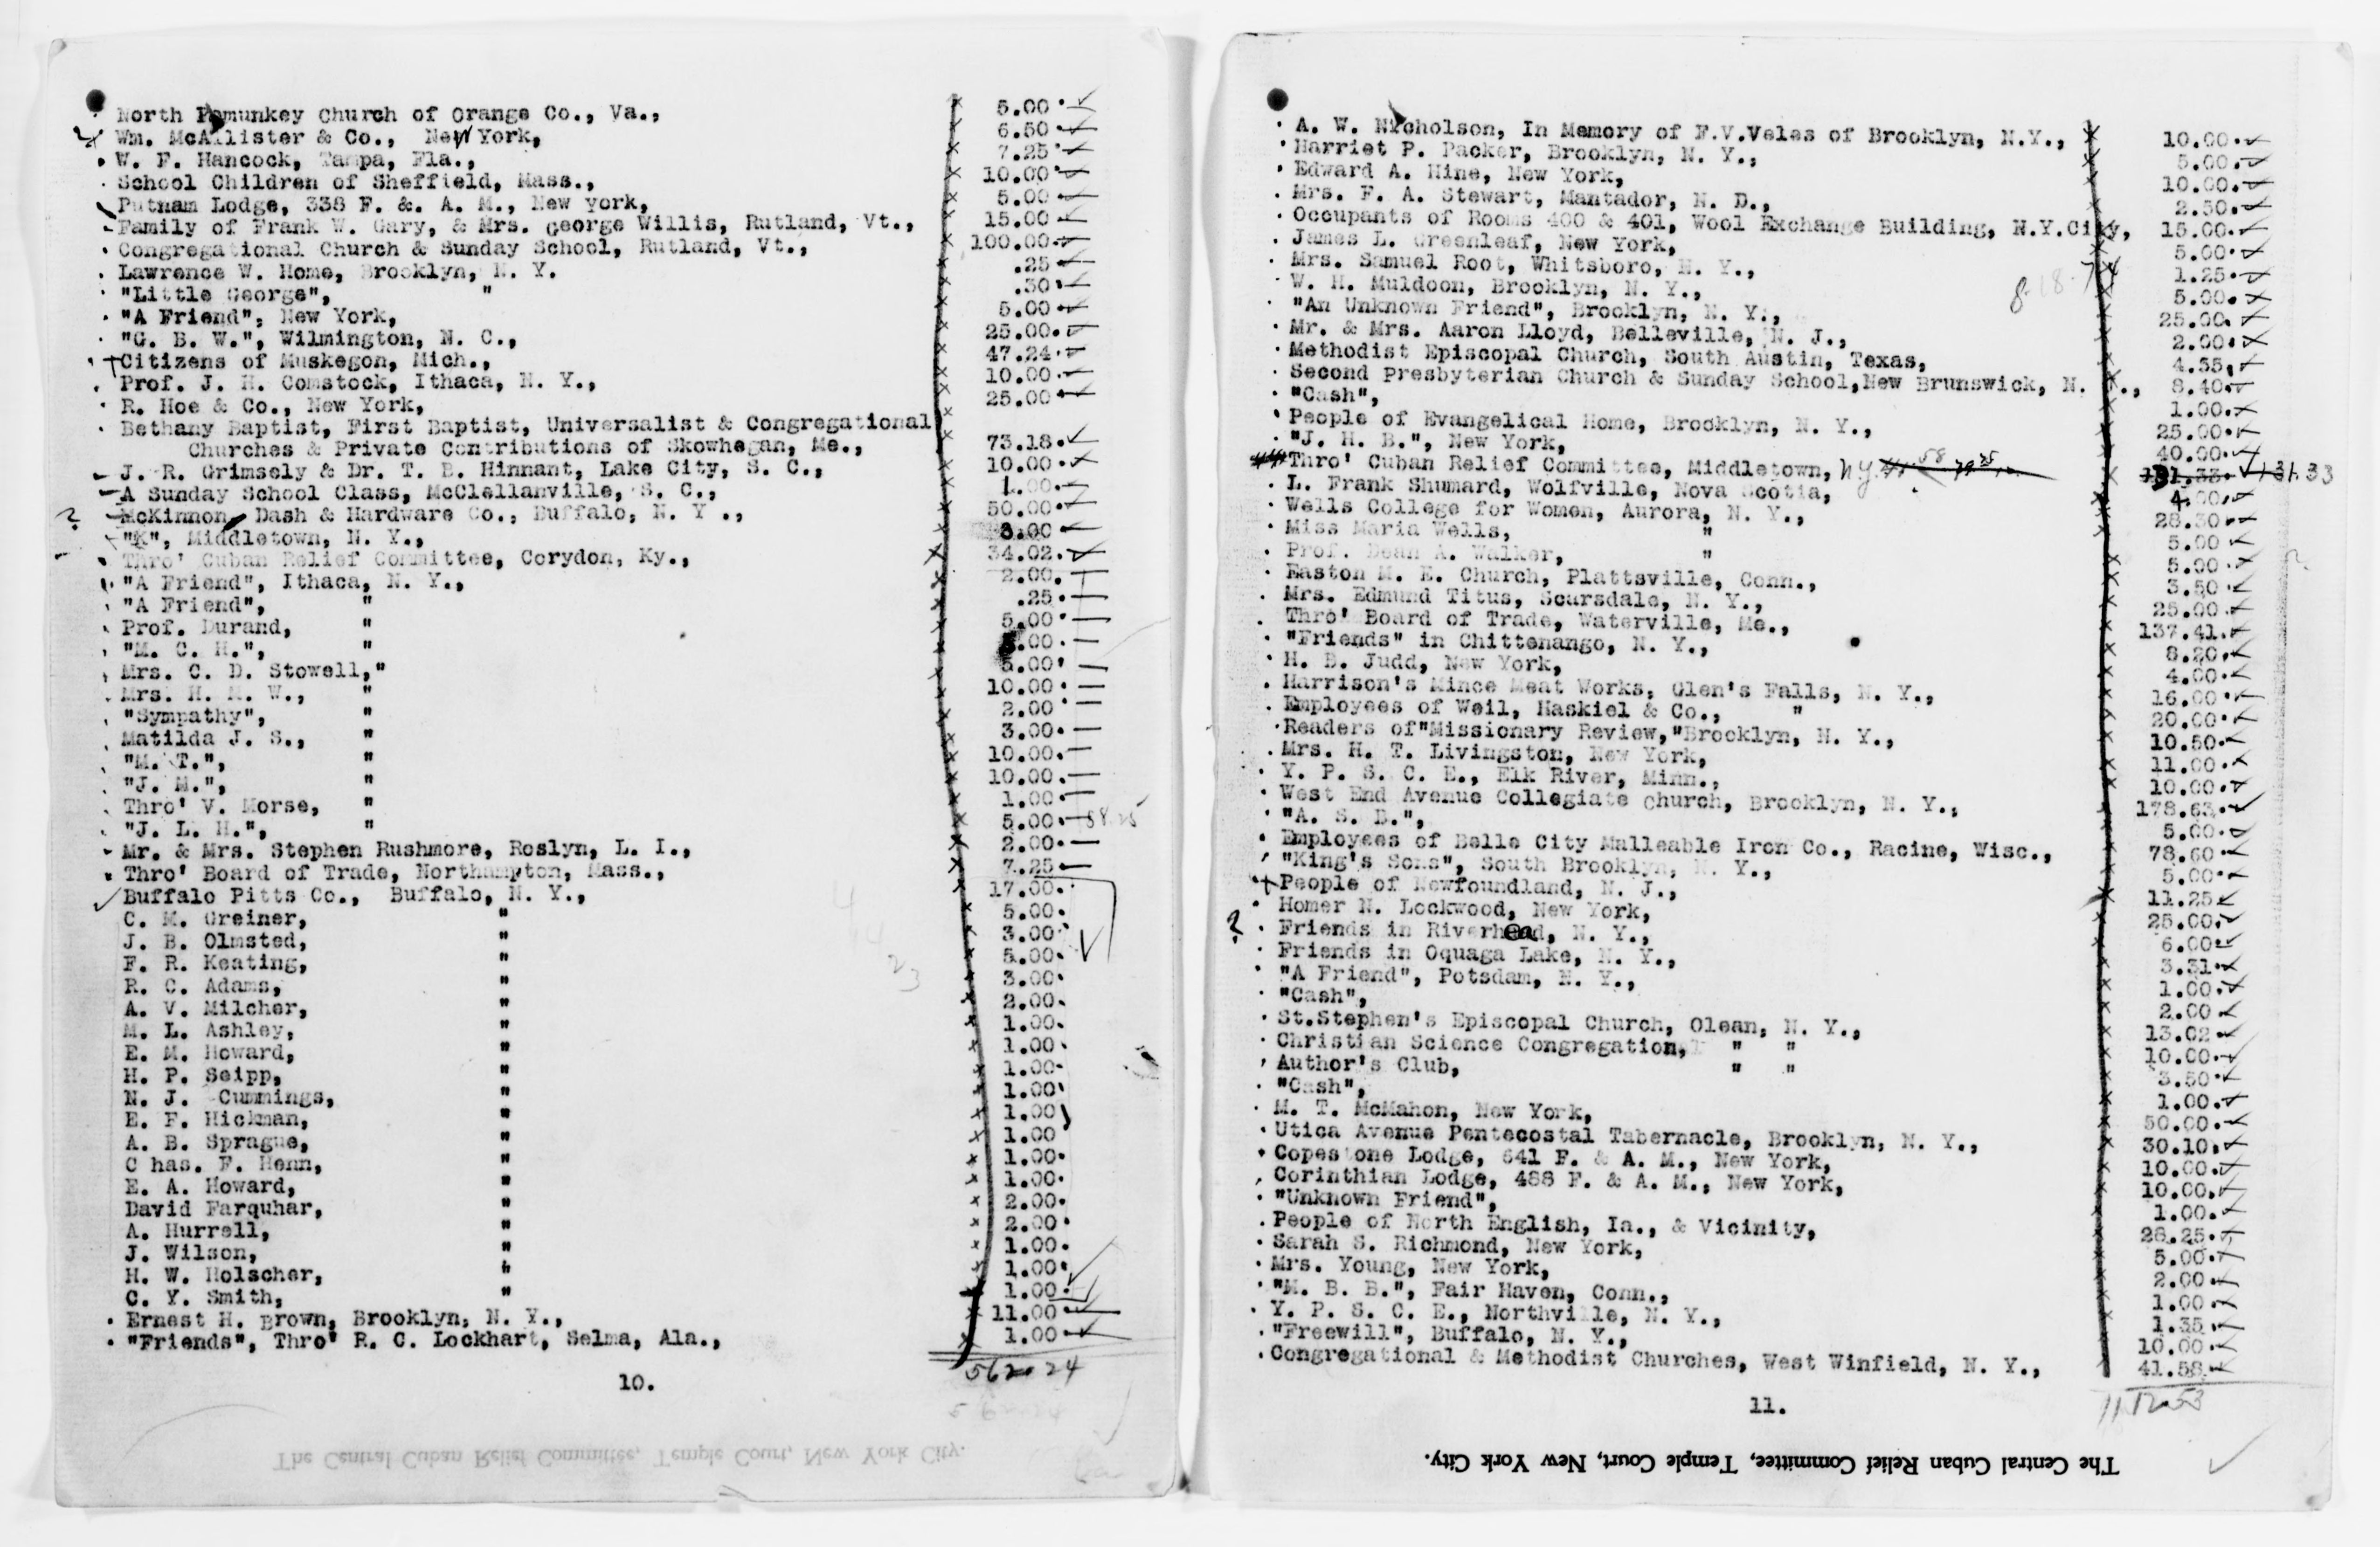 North Pamunkey Church of Orange Co., Va., 5.00
Wm. McAllister & Co., New York, 6.50
W. F. Hancock, Tampa, Fla., 7.25
School Children of Sheffield, Mass., 10.00
Putnam Lodge, 338 F. &. A. M., New York, 5.00
Family of Frank W. Gary, & Mrs. George Willis, Rutland, Vt., 15.00
Congregational Church & Sunday School, Rutland, Vt., 100.00
Lawrence W. Home, Brooklyn, N. Y. .25
"Little George", " .30
"A Friend", New York, 5.00
"G. B. W.", Wilmington, N. C., 25.00
Citizens of Muskegon, Mich., 47.24
Prof. J. H. Comstock, Ithaca, N. Y., 10.00
R. Hoe & Co., New York, 25.00
Bethany Baptist, First Baptist, Universalist & Congregational
Churches & Private Contributions of Skowhegan, Me., 73.18
J. R. Grimsely & Dr. T. B. Hinnant, Lake City, S. C., 10.00
A Sunday School Class, McClellanville, S. C., 1.00
McKinnon Dash & Hardware Co., Buffalo, N. Y ., 50.00
"K", Middletown, N. Y., 3.00
Thro' Cuban Relief Committee, Corydon, Ky., 34.02
"A Friend", Ithaca, N. Y., 2.00
"A Friend", " .25
Prof. Durand, " 5.00
"M. C. H.", " .00
Mrs. C. D. Stowell, " 5.00
Mrs. H. M. W., " 10.00
"Sympathy", " 2.00
Matilda J. S., " 3.00
"M. T.", " 10.00
"J. M.", " 10.00
Thro' V. Morse, " 1.00
"J. L. H.", " 5.00 58.25
Mr. & Mrs. Stephen Rushmore, Roslyn, L. I., 2.00
Thro' Board of Trade, Northampton, Mass., 7.25
Buffalo Pitts Co., Buffalo, N. Y., 17.00
C. M. Greiner, " 5.00
J. B. Olmsted, " 3.00
F. R. Keating, " 5.00
R. C. Adams, " 3.00
A. V. Milcher, " 2.00
M. L. Ashley, " 1.00
E. M. Howard, " 1.00
H. P. Seipp, " 1.00
N. J. Cummings, " 1.00
E. F. Hickman, " 1.00
A. B. Sprague, " 1.00
C has. F. Henn, " 1.00
E. A. Howard, " 1.00
David Farquhar, " 2.00
A. Hurrell, " 2.00
J. Wilson, " 1.00
H. W. Holscher, " 1.00
C. Y. Smith, " 1.00
Ernest H. Brown, Brooklyn, N. Y., 11.00
"Friends", Thro' R. C. Lockhart, Selma, Ala., 1.00
562 24
10.
The Central Cuban Relief Committee, Temple Court, New York City.
A. W. Nicholson, In Memory of F.V.Veles of Brooklyn, N.Y., 10.00
Harriet P. Packer, Brooklyn, N. Y., 5.00
Edward A. Hine, New York, 10.00
Mrs. F. A. Stewart, Mantador, N. D., 2.50
Occupants of Rooms 400 & 401, Wool Exchange Building, N.Y.City, 15.00
James L. Greenleaf, New York, 5.00
Mrs. Samuel Root, Whitsboro, N. Y., 1.25
W. H. Muldoon, Brooklyn, N. Y., 5.00
"An Unknown Friend", Brooklyn, N. Y., 25.00
Mr. & Mrs. Aaron Lloyd, Belleville, N. J., 2.00
Methodist Episcopal Church, South Austin, Texas, 4.55
Second Presbyterian Church & Sunday School,New Brunswick, N. ., 8.40
"Cash", 1.00
People of Evangelical Home, Brooklyn, N. Y., 25.00
"J. H. B.", New York, 40.00
Thro' Cuban Relief Committee, Middletown, N.Y. 131.33 131.33
L. Frank Shumard, Wolfville, Nova Scotia, 4.00
Wells College for Women, Aurora, N. Y., 28.30
Miss Maria Wells, " 5.00
Prof. Dean A. Walker, " 5.00
Easton M. E. Church, Plattsville, Conn., 3.50
Mrs. Edmund Titus, Scarsdale, N. Y., 25.00
Thro' Board of Trade, Waterville, Me., 137.41
"Friends" in Chittenango, N. Y., 8.20
H. B. Judd, New York, 4.00
Harrison's Mince Meat Works, Glen's Falls, N. Y., 16.00
Employees of Weil, Haskiel & Co., " 20.00
Readers of"Missionary Review,"Brooklyn, N. Y., 10.50
Mrs. H. T. Livingston, New York, 11.00
Y. P. S. C. E., Elk River, Minn., 10.00
West End Avenue Collegiate Church, Brooklyn, N. Y., 178.63
"A. S. B.", 5.00
Employees of Belle City Malleable Iron Co., Racine, Wisc., 78.60
"King's Sons", South Brooklyn, N. Y., 5.00
People of Newfoundland, N. J., 11.25
Homer N. Lockwood, New York, 25.00
Friends in Riverhead, N. Y., 6.00
Friends in Oquaga Lake, N. Y., 3.31
"A Friend", Potsdam, N. Y., 1.00
"Cash", 2.00
St.Stephen's Episcopal Church, Olean, N. Y., 13.02
Christian Science Congregation, " " 10.00
Author's Club, " " 3.50
"Cash", 1.00
M. T. McMahon, New York, 50.00
Utica Avenue Pentecostal Tabernacle, Brooklyn, N. Y., 30.10
Copestone Lodge, 641 F. & A. M., New York, 10.00
Corinthian Lodge, 488 F. & A. M., New York, 10.00
"Unknown Friend", 1.00
People of North English, Ia., & Vicinity, 28.25
Sarah S. Richmond, New York, 5.00
Mrs. Young, New York, 2.00
"M. B. B.", Fair Haven, Conn., 1.00
Y. P. S. C. E., Northville, N. Y., 1.35
"Freewill", Buffalo, N. Y., 10.00
Congregational & Methodist Churches, West Winfield, N. Y., 41.58
11.
The Central Cuban Relief Committee, Temple Court, New York City.